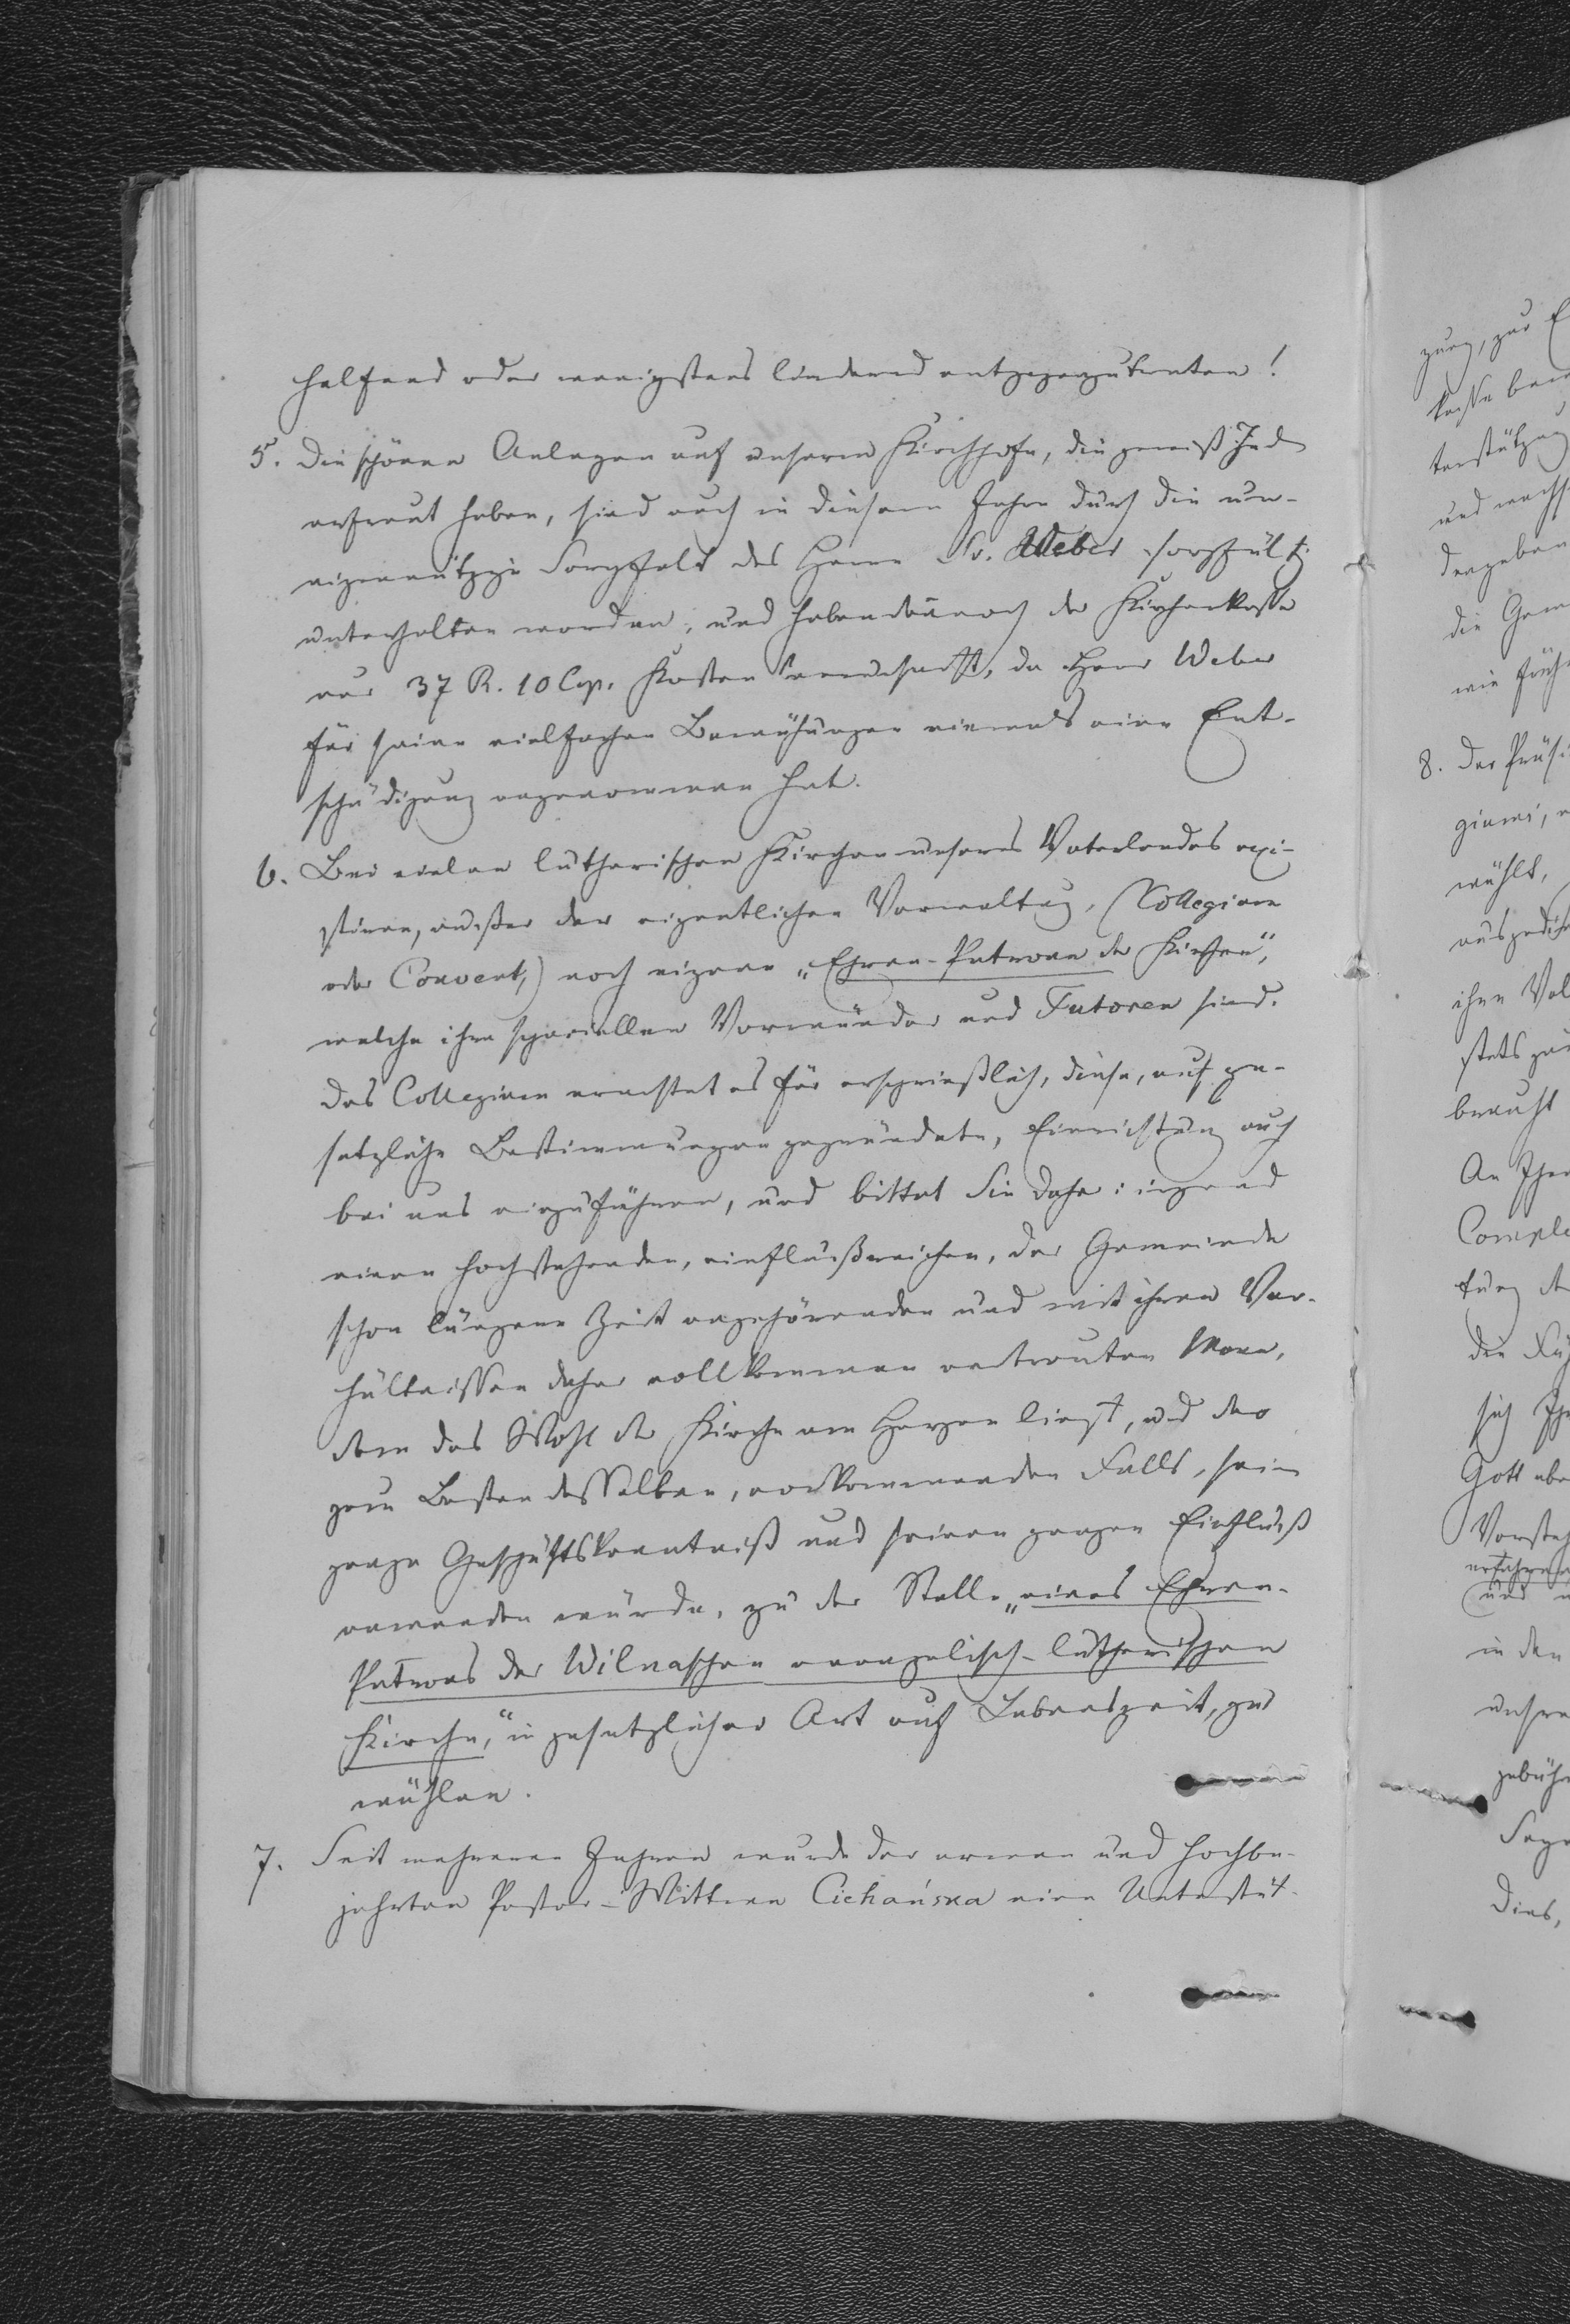 helfend oder wenigstens lindernd entgegenzutreten!
5. Die schönen Anlagen auf unserm Kirchhofe, die gewiß Jeden
erfreut haben, sind auch in diesem Jahre durch die un-
eigennützige Sorgfalt des Herrn Dr. Weber sorgfältig
unterhalten worden, und haben dennoch der Kirchenkasse
nur 37 R. 10 Cop. Kosten verursacht, da Herr Weber
für seine vielfachen Bemühungen niemals eine Ent-
schädigung angenommen hat.
6. Bei vielen lutherischen Kirchen unseres Vaterlandes exi-
stiren, außer der eigentlichen Verwaltung, (Collegium
oder Convent,) noch eigene „Ehren-Patrone der Kirchen",
welche ihre speciellen Vormünder und Tutoren sind.
Das Collegium erachtet es für ersprießlich, diese, auf ge-
setzliche Bestimmungen gegründete, Einrichtung auch
bei uns einzuführen, und bittet Sie daher: irgend
einen hochstehenden, einflußreichen, der Gemeinde
schon längere Zeit angehörenden und mit ihren Ver-
hältnissen daher vollkommen vertrauten Mann,
dem das Wohl der Kirche am Herzen liegt, und der
zum Besten desselben, vorkommenden Falls, seine
ganze Geschäftskenntniß und seinen ganzen Einfluß
anwenden würde, zu der Stelle „eines Ehren-
Patrons der Wilnaschen evangelisch-lutherischen
Kirche," in gesetzlicher Art auf Lebenszeit, zu
wählen.
7. Seit mehreren Jahren wurde der armen und hochbe-
jahrten Pastor-Wittwe Cichańska eine Unterstüt-
zung, zur
kasse
terstützung
und
dergeben
die Gem
wie früh
8. Der Präsi
giums,
wählt,
ihre Vol
stets zu
braucht
An Ihr
Comple
die
sich Ihr
Gott
Vorsteh
erfahren
und
in den
unsre
gebühr
Dies,